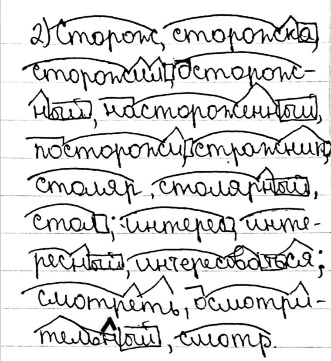 2) Сторож, сторожка,
сторожил, осторож-
ный, настороженный,
посторожи, стражник,
столяр, столярный,
стол; интерес, инте-
ресный, интересоваться;
смотреть, осмотри-
тельный, смотр.